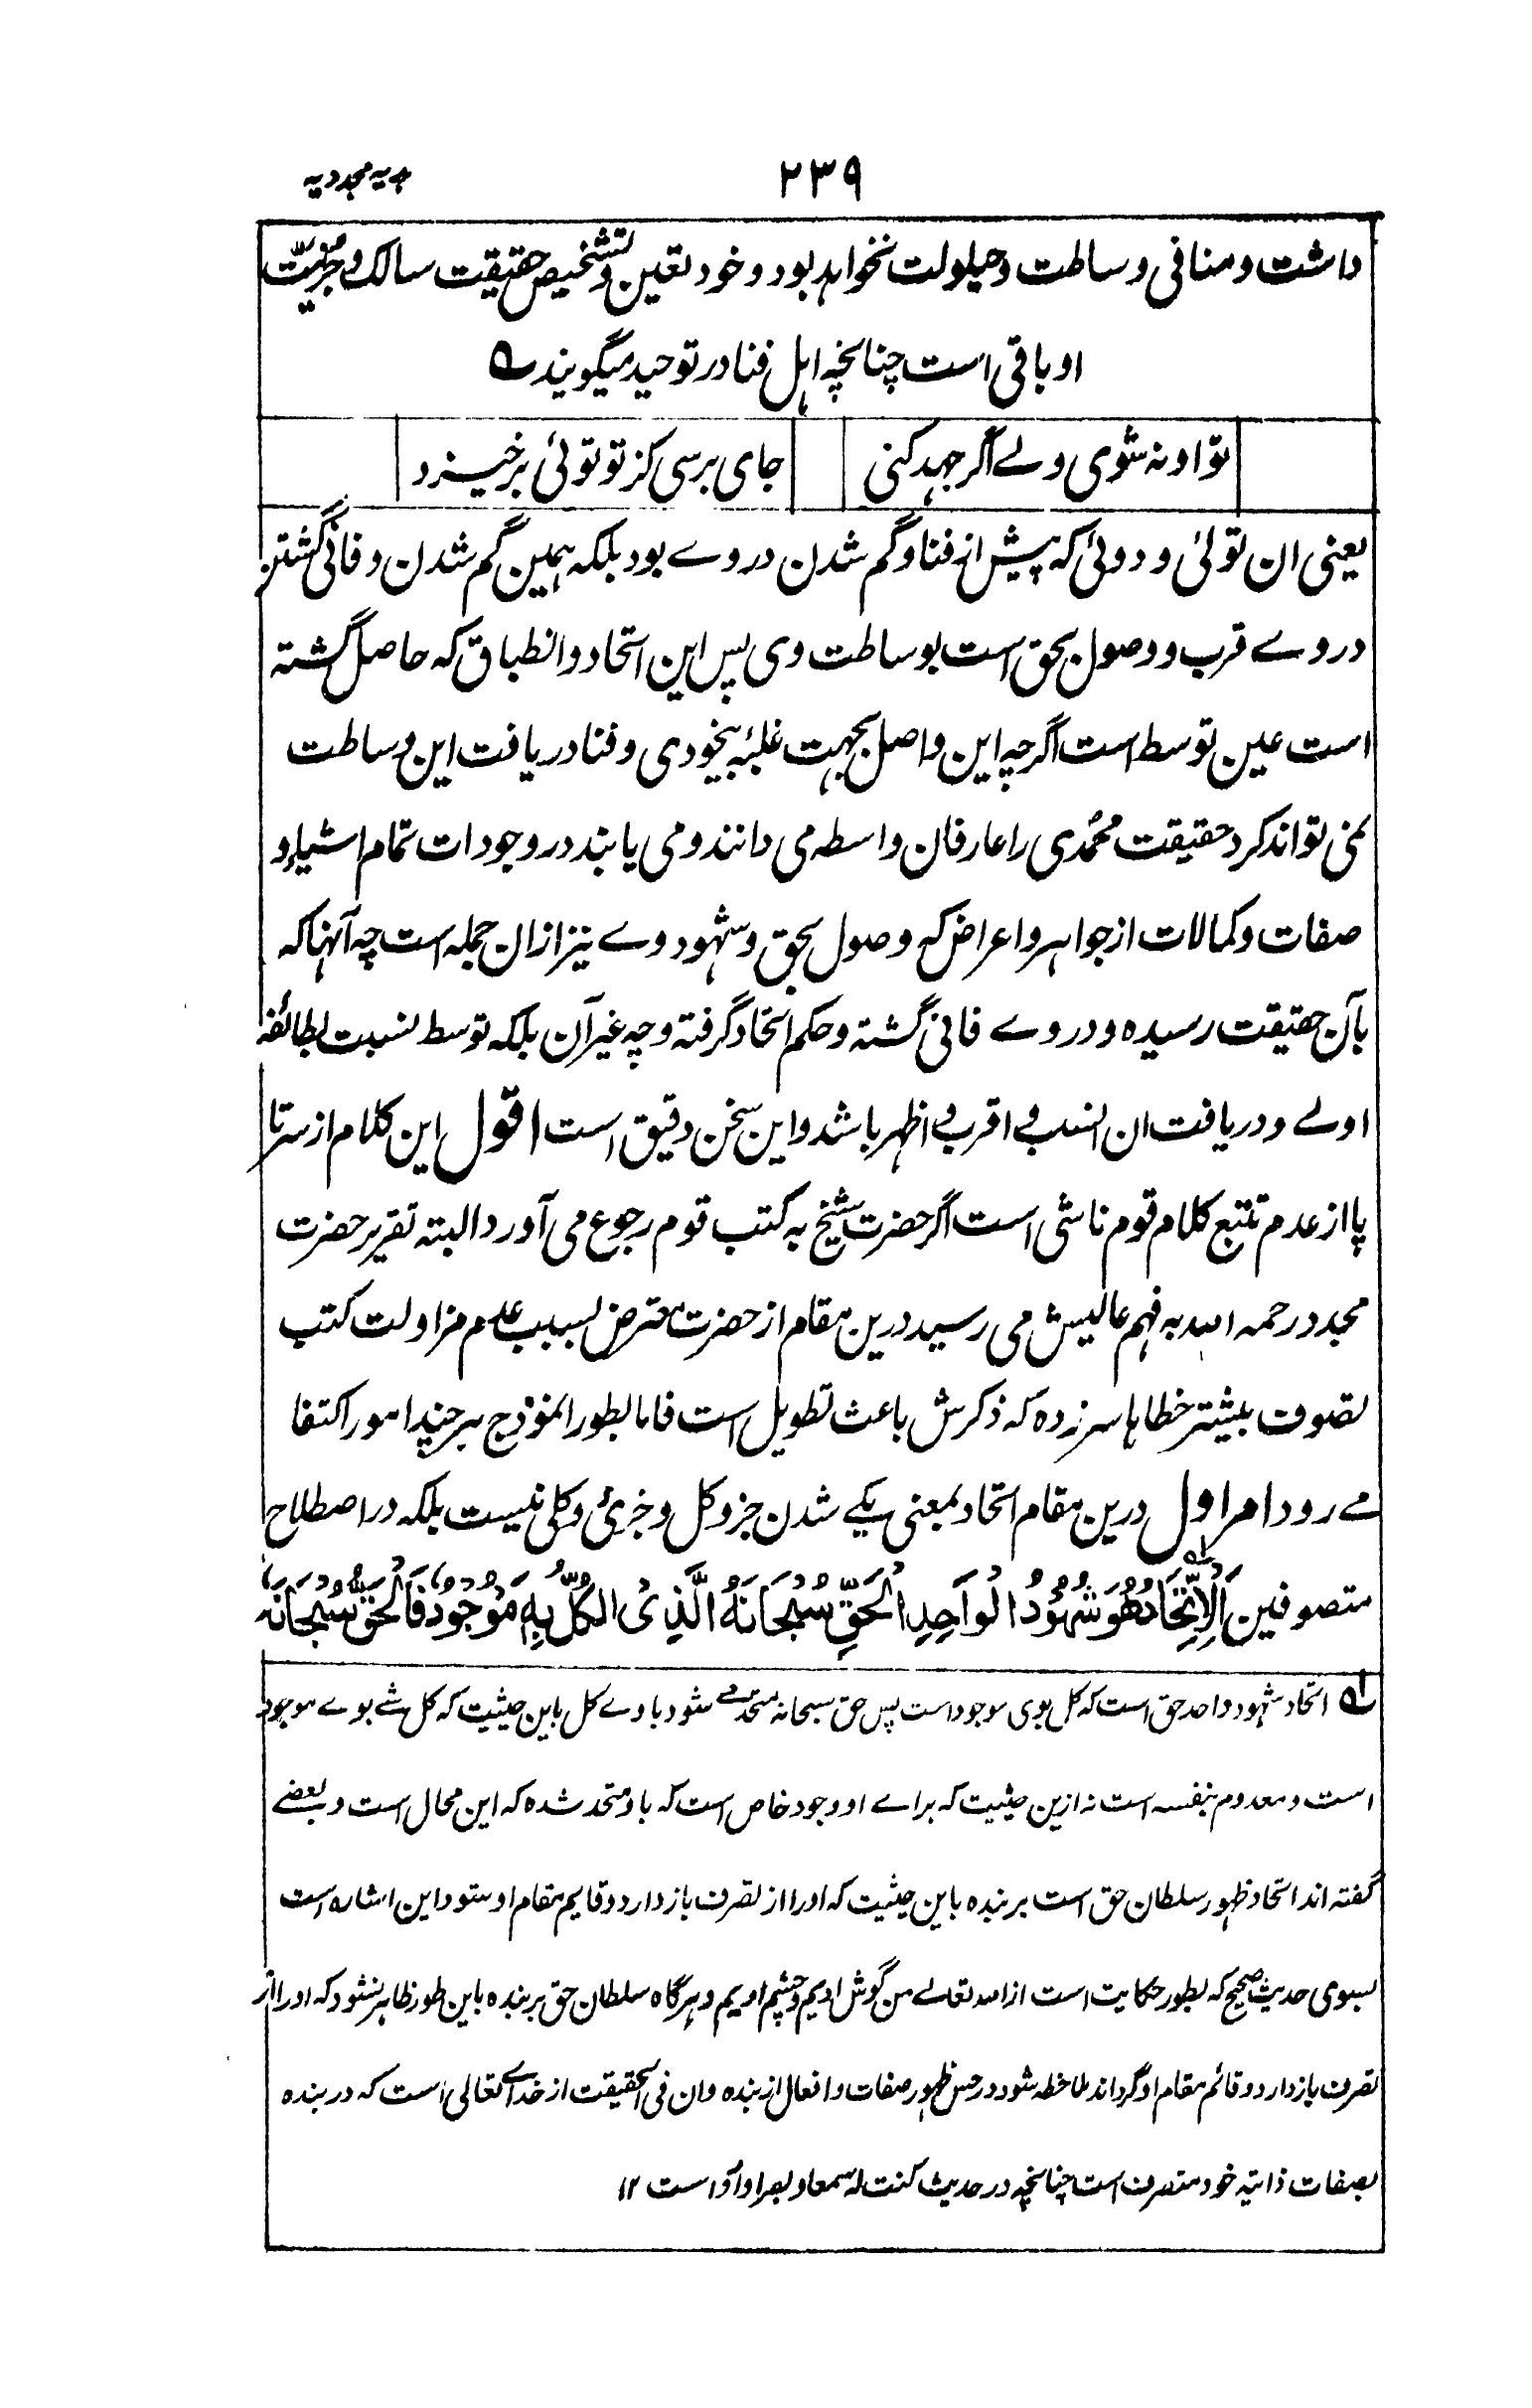 ۲۳۹
ہدیہ مجددیہ
داشت و منافی وساطت و حیلولت نخواہد بود و خود تعین و تشخیص حقیقت سالک و جزئیت
او باقی است چنانچہ اہل فنا در توحید میگویند ؎
تو او نہ شوی ولے اگر جہد کنی جای برسی کز تو توئی برخیزد
یعنی ان توئی و دوئی کہ پیش از فنا و گم شدن در وے بود بلکہ ہمین گم شدن و فانی گشتن
در وے قرب و وصول بحق است بوساطت وی پس این اتحاد و انطباق کہ حاصل گشتہ
است عین توسط است اگرچہ این واصل بجہت غلبۂ بیخودی و فنا دریافت این وساطت
نمی تواند کرد حقیقت محمدی را عارفان واسطہ می دانند و می یابند در وجودات تمام اشیاء و
صفات و کمالات از جواہر و اعراض کہ وصول بحق و شہود وے نیز ازان جملہ است چہ آنہا کہ
بآن حقیقت رسیدہ و در وے فانی گشتہ و حکم اتحاد گرفتہ و چہ غیر آن بلکہ توسط نسبت بطائفہ
اولے و دریافت ان انسب و اقرب و اظہر باشد و این سخن دقیق است اقول این کلام از سر تا
پا از عدم تتبع کلام قوم ناشی است اگر حضرت شیخ بہ کتب قوم رجوع می آورد البتہ تقریر حضرت
مجدد رحمہ اللہ بہ فہم عالیش می رسید درین مقام از حضرت معترض بسبب عدم مزاولت کتب
تصوف بیشتر خطاہا سر زدہ کہ ذکرش باعث تطویل است فاما بطور انموذج بر چند امور اکتفا
مے رود امر اول درین مقام اتحاد بمعنی یکے شدن جز و کل و جزئ و کلی نیست بلکہ در اصطلاح
متصوفین اَلْاِتِّحَادُ ھُوَ شُھُوْدُ الْوَاحِدِ الْحَقِّ سُبْحَانَہُ الَّذِیْ الْکُلُّ بِہٖ مَوْجُوْدٌ فَالْحَقُّ سُبْحَانَہٗ
؎ اتحاد شہود واحد حق است کہ کل بوی موجود است پس حق سبحانہ متحد مے شود با وے کل باین حیثیت کہ کل شے بوے موجود
است و معدوم بنفسہ است نہ ازین حیثیت کہ براے او وجود خاص است کہ با و متحد شدہ کہ این محال است و بعضے
گفتہ اند اتحاد ظہور سلطان حق است بر بندہ باین حیثیت کہ او را از تصرف باز دارد و قایم مقام او ستود این اشارہ است
بسوی حدیث صحیح کہ بطور حکایت است از اللہ تعالے من گوش اویم و چشم اویم و ہرگاہ سلطان حق بر بندہ باین طور ظاہر نشود کہ او را از
تصرف باز دارد و قائم مقام او گرداند ملاحظہ شود در حس ظہور صفات و افعال از بندہ وان فی الحقیقت از خداے تعالی است کہ در بندہ
بصفات ذاتیہ خود متصرف است چنانچہ در حدیث کنت لہ سمعا و بصرا و است ۱۲